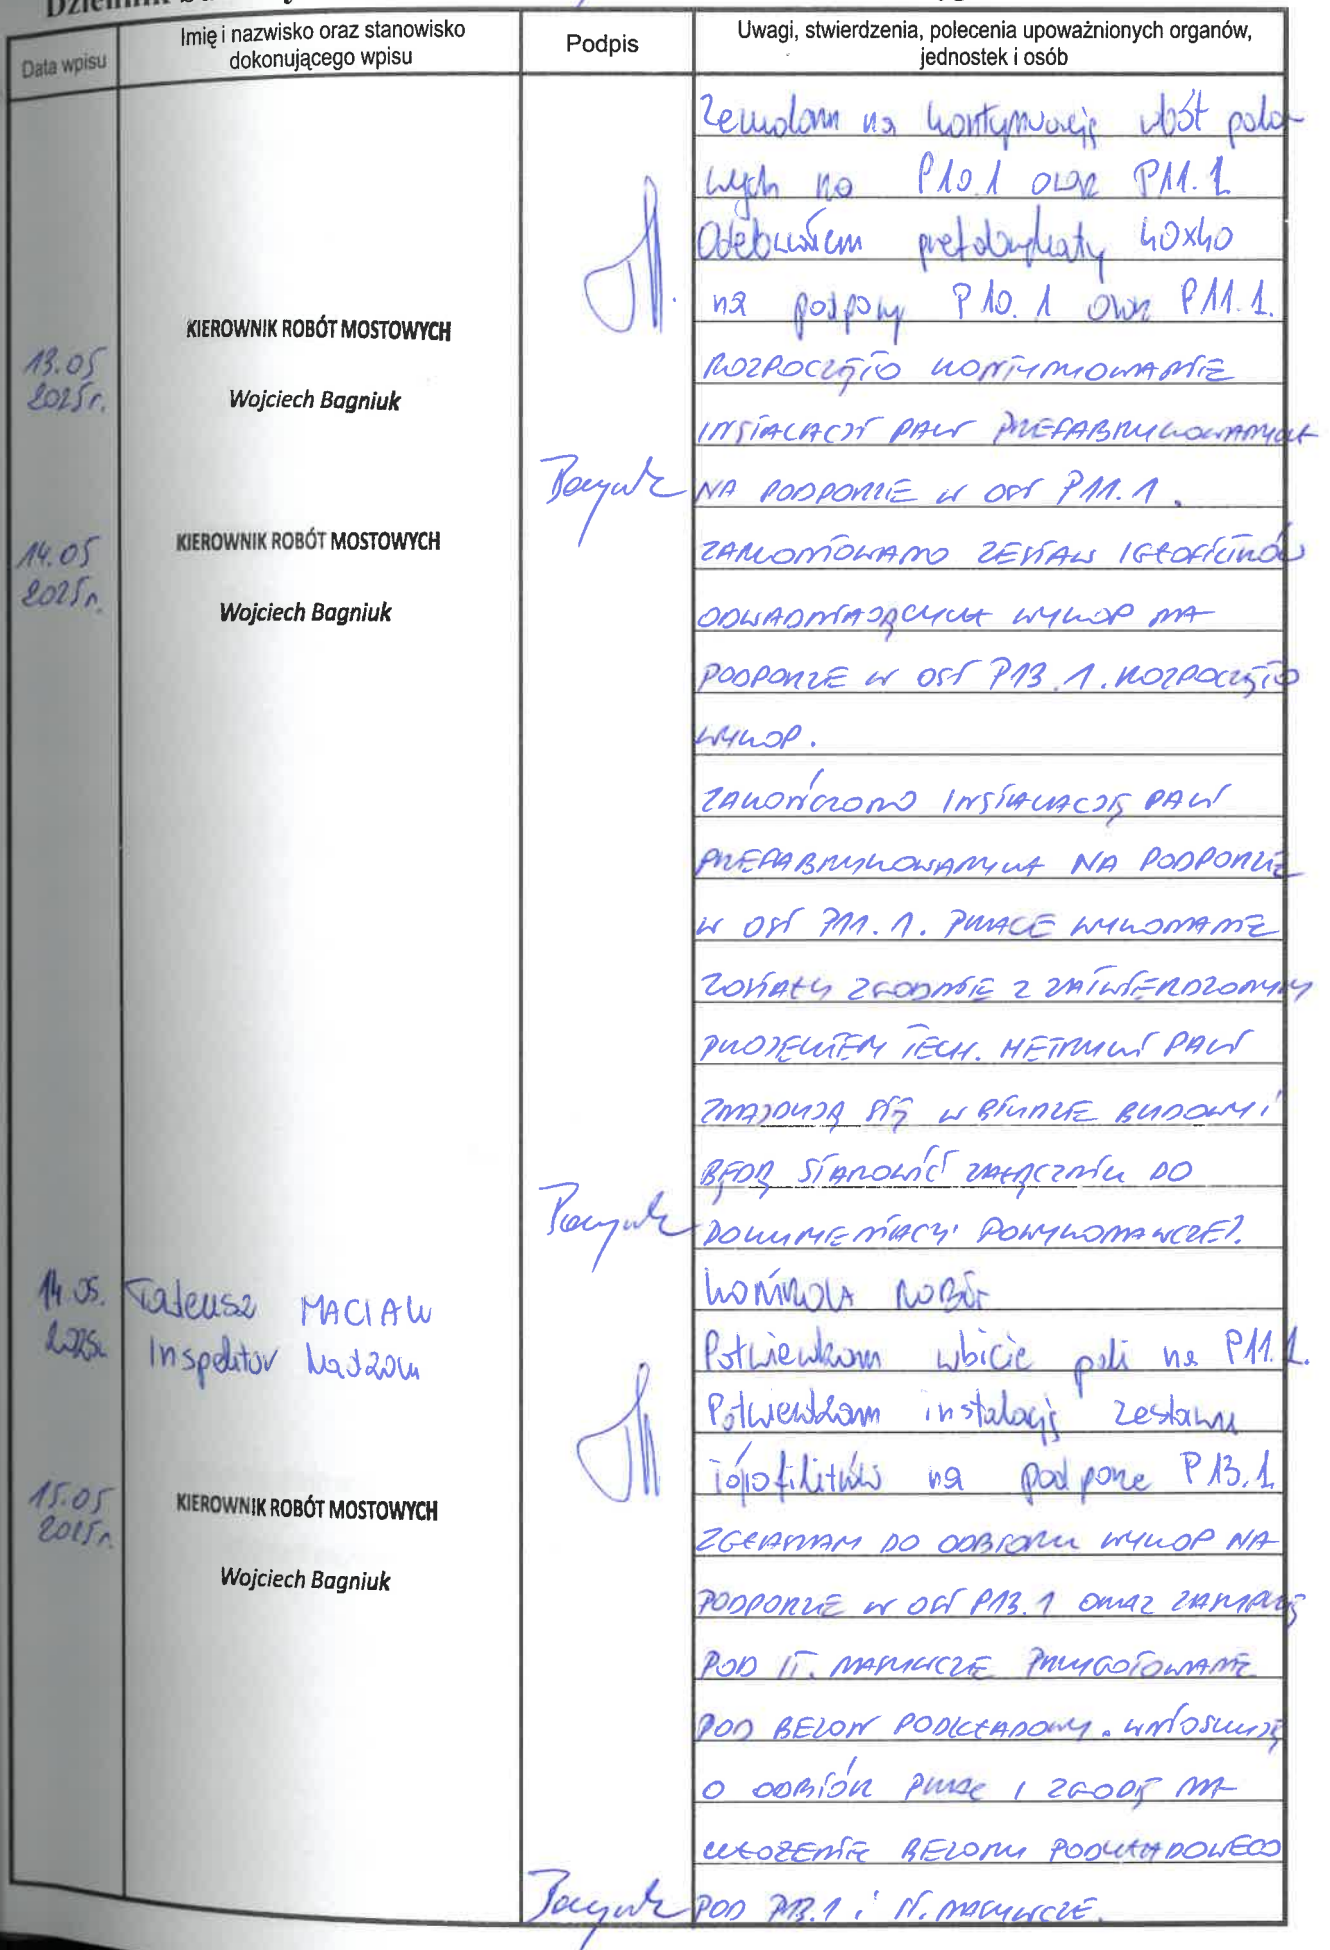 Data wpisu
Imię i nazwisko oraz stanowisko
dokonującego wpisu
Podpis
Uwagi, stwierdzenia, polecenia upoważnionych organów,
jednostek i osób
Zezwalam na kontynuację robót palo-
wych na P10.1 oraz P11.1
Odebrałem prefabrykaty 40x40
na podpory P10.1 oraz P11.1.
13.05
2025r.
KIEROWNIK ROBÓT MOSTOWYCH
Wojciech Bagniuk
ROZPOCZĘTO KONTYNUOWANIE
INSTALACJI PALI PREFABRYKOWANYCH
NA PODPORZE W OSI P11.1.
14.05
2025r.
KIEROWNIK ROBÓT MOSTOWYCH
Wojciech Bagniuk
ZAMONTOWANO ZESTAW IGŁOFILTRÓW
ODWADNIAJĄCYCH WYKOP NA
PODPORZE W OSI P13.1. ROZPOCZĘTO
WYKOP.
ZAKOŃCZONO INSTALACJĘ PALI
PREFABRYKOWANYCH NA PODPORZE
W OSI P11.1. PRACE WYKONANE
ZOSTAŁY ZGODNIE Z ZATWIERDZONYM
PROJEKTEM TECH. METRYKI PALI
ZNAJDUJĄ SIĘ W BIURZE BUDOWY I
BĘDĄ STANOWIĆ ZAŁĄCZNIK DO
DOKUMENTACJI POWYKONAWCZEJ.
14.05.
2025r.
Tadeusz MACIAK
Inspektor Nadzoru
KONTROLA ROBÓT
Potwierdzam wbicie pali na P11.1.
Potwierdzam instalację zestawu
igłofiltrów na podporze P13.1
15.05
2025r.
KIEROWNIK ROBÓT MOSTOWYCH
Wojciech Bagniuk
ZGŁASZAM DO ODBIORU WYKOP NA
PODPORZE W OSI P13.1 ORAZ
POD PRZYGOTOWANE
POD BETON PODKŁADOWY. WNIOSKUJĘ
O ODBIÓR PRAC I ZGODĘ NA
UŁOŻENIE BETONU PODKŁADOWEGO
POD P13.1 i